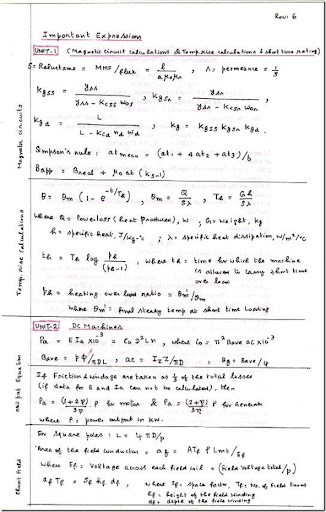 Revi 6
Important Expressions
UNIT-1 (Magnetic Circuit calculations & Temp.rise calculations & short time rating)
S = Reluctance = MMF/flux = l/aμ₀μᵣ , Λ = permeance = 1/S
Kgss = yss/(yss - Kcss wos) , Kgsr = ysr/(ysr - Kcsr wor)
Kgd = L/(L - Kcd nd wd) , Kg = Kgss Kgsr Kgd.
Magnetic circuits
Simpson's rule: at mean = (at1 + 4at2 + at3)/6
Bapp = Breal + μ₀ at (Ks-1)
θ = θm (1 - e^-t/Th) , θm = Q/Sλ , Th = Gh/Sλ
Where Q = Power loss (heat Produced), W ; G = Weight, kg
h = specific heat, J/kg-°c ; λ = specific heat dissipation, W/m²/°c
Temp.rise calculations
th = Th log Ph/(Ph-1) , where th = time for which the machine
is allowed to carry short time
over load
Ph = heating over load ratio = θm'/θm
where θm' = final steady temp at short time loading
UNIT-2 DC Machines
Pa = E Ia x10^-3 = Co D²Ln , where Co = π² Bave ac x10^-3
Bave = pφ/πDL , ac = IzZ/πD , Bg = Bave/ψ
Output Equation
If Friction & windage are taken as 1/3 of the total losses
(if data for E and Ia can not be calculated), then
Pa = (1+2η)/3η P for motor & Pa = (2+η)/3η P for Generator
where P = power output in KW.
For square poles: L = ψπD/p
Area of the field conductor = af = ATf ρ Lmt/Ef
where Ef = Voltage across each field coil = (field voltage total/p)
Shunt field
af Tf = Sf hf df , where Sf = space factor, Tf = No. of field turns
hf = height of the field winding
df = depth of the field winding